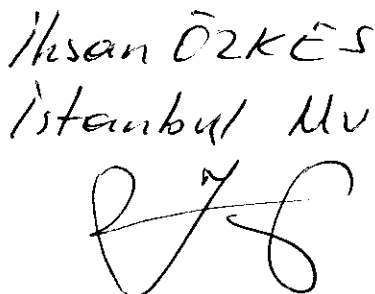 İhsan ÖZKES
İstanbul Mv